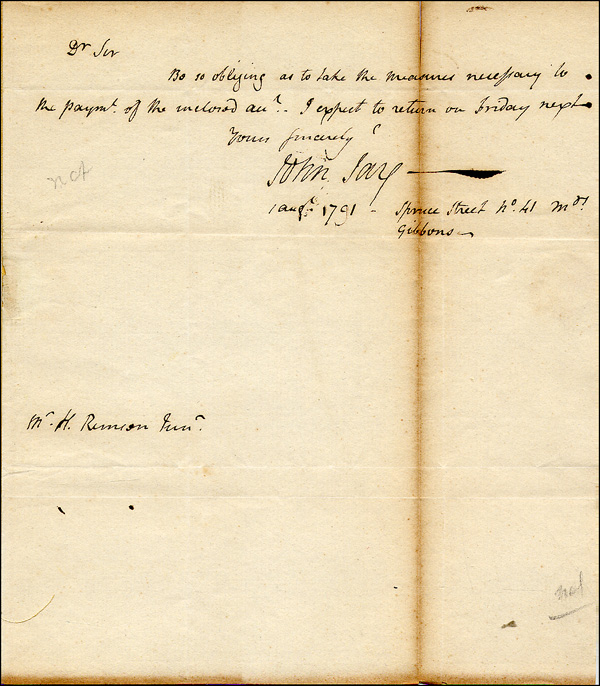 Dr Sir
Be so obliging as to take the measures necessary to
the paymt. of the inclosed acct. - I expect to return on Friday next
Yours sincerely
John Jay
1 augt. 1791 - Spruce Street No. 41 Mrs.
Gibbons
not
Mr. H. Remsen Junr.
not